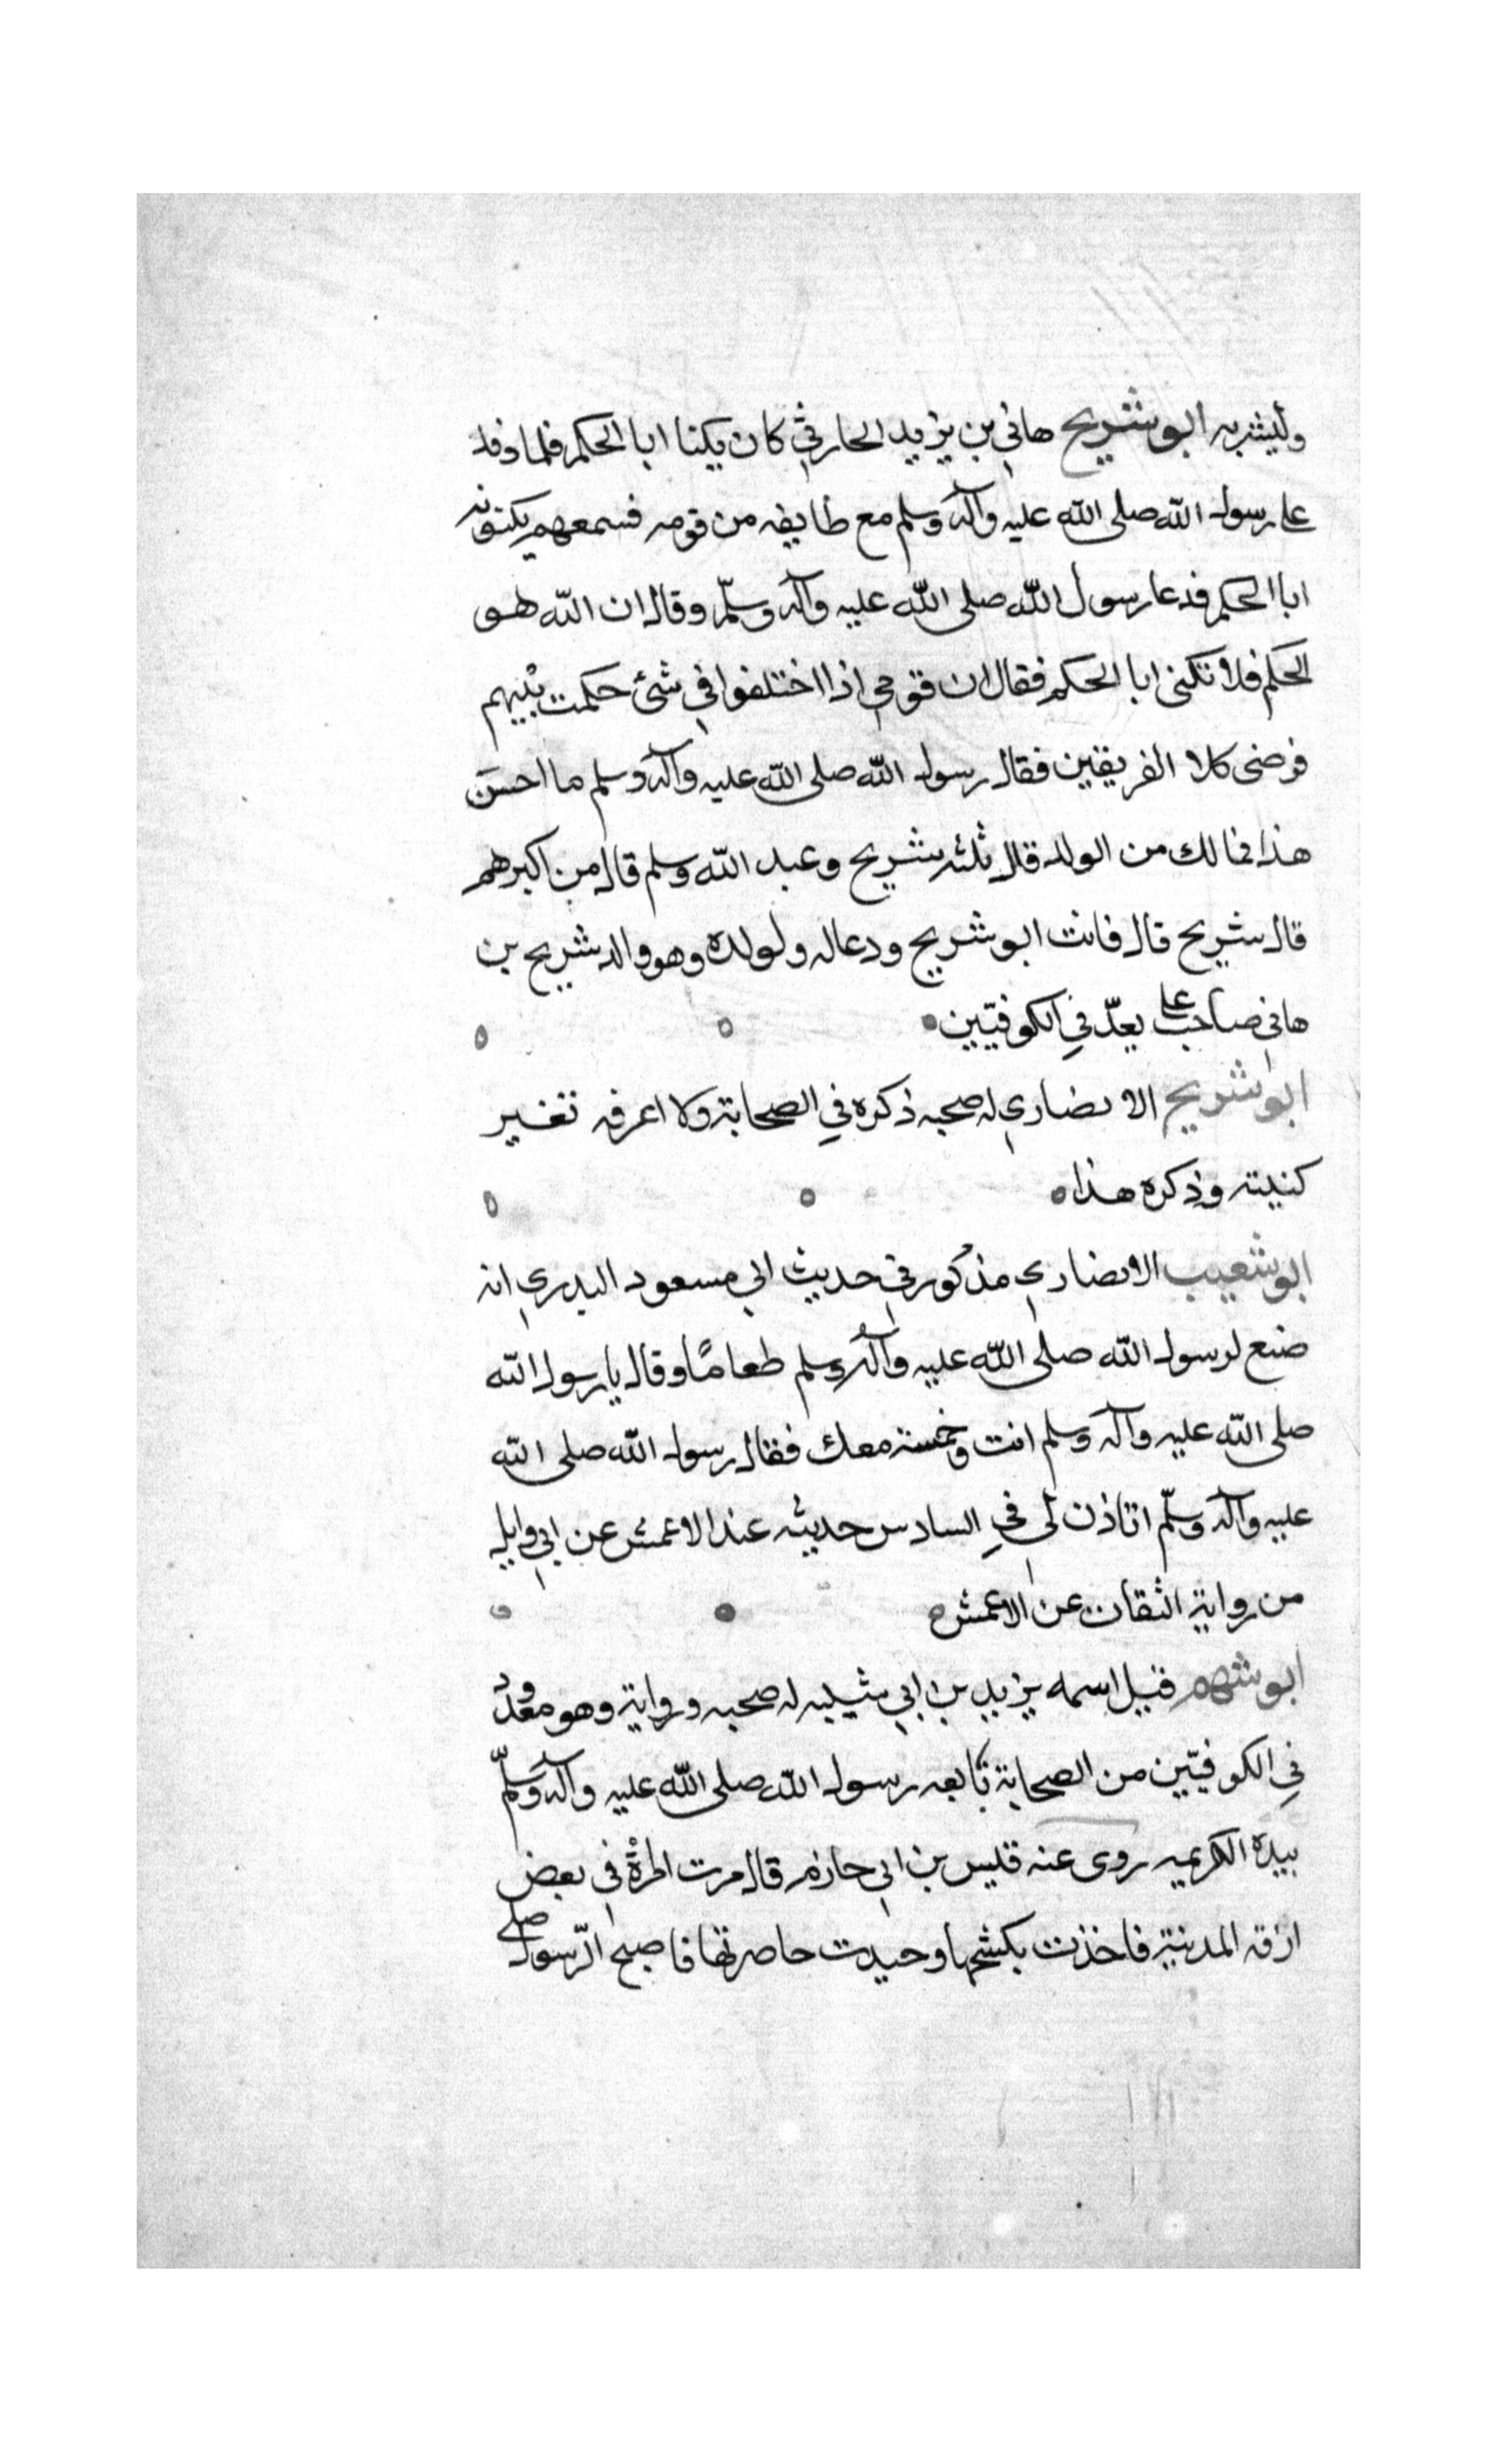 وليشربه ابو شريح هاني بن يزيد الحارثي كان يكنا ابا الحكم فلما وفد
علي رسول الله صلى الله عليه وآله وسلم مع طايفه من قومه فسمعهم يكنونه
ابا الحكم فدعا رسول الله صلى الله عليه وآله وسلّم وقال ان الله هو
الحكم فلا تكنى ابا الحكم فقال ان قومي اذا اختلفوا في شئ حكمت بينهم
فرضى كلا الفريقين فقال رسول الله صلى الله عليه وآله وسلم ما احسن
هذا فما لك من الولد قال ثلثه شريح وعبد الله وسلم قال من اكبرهم
قال شريح قال فانت ابو شريح ودعا له ولولده وهو والد شريح بن
هاني صاحب علي يعدّ في الكوفيّين
ابو شريح الانصاري له صحبه ذكره في الصحابة ولا اعرفه تغير
كنيته وذكره هذا
ابو شعيب الانصاري مذكور في حديث ابي مسعود البدري انه
صنع لرسول الله صلى الله عليه وآله وسلم طعامًا وقال يا رسول الله
صلى الله عليه وآله وسلم انت وخمسة معك فقال رسول الله صلى الله
عليه وآله وسلّم اتاذن لي في السادس حديثه عند الاعمش عن ابي وايل
من رواية الثقات عن الاعمش
ابو شهم قيل اسمه يزيد بن ابي شيبه له صحبه ورواية وهو معدود
في الكوفيّين من الصحابة بايعه رسول الله صلى الله عليه وآله وسلّم
بيده الكريمه روى عنه قيس بن ابي حازم قال مرت امرة في بعض
ازقه المدينة فاخذت بكشحها وجبدت خاصرتها فاصبح الرّسول صلى